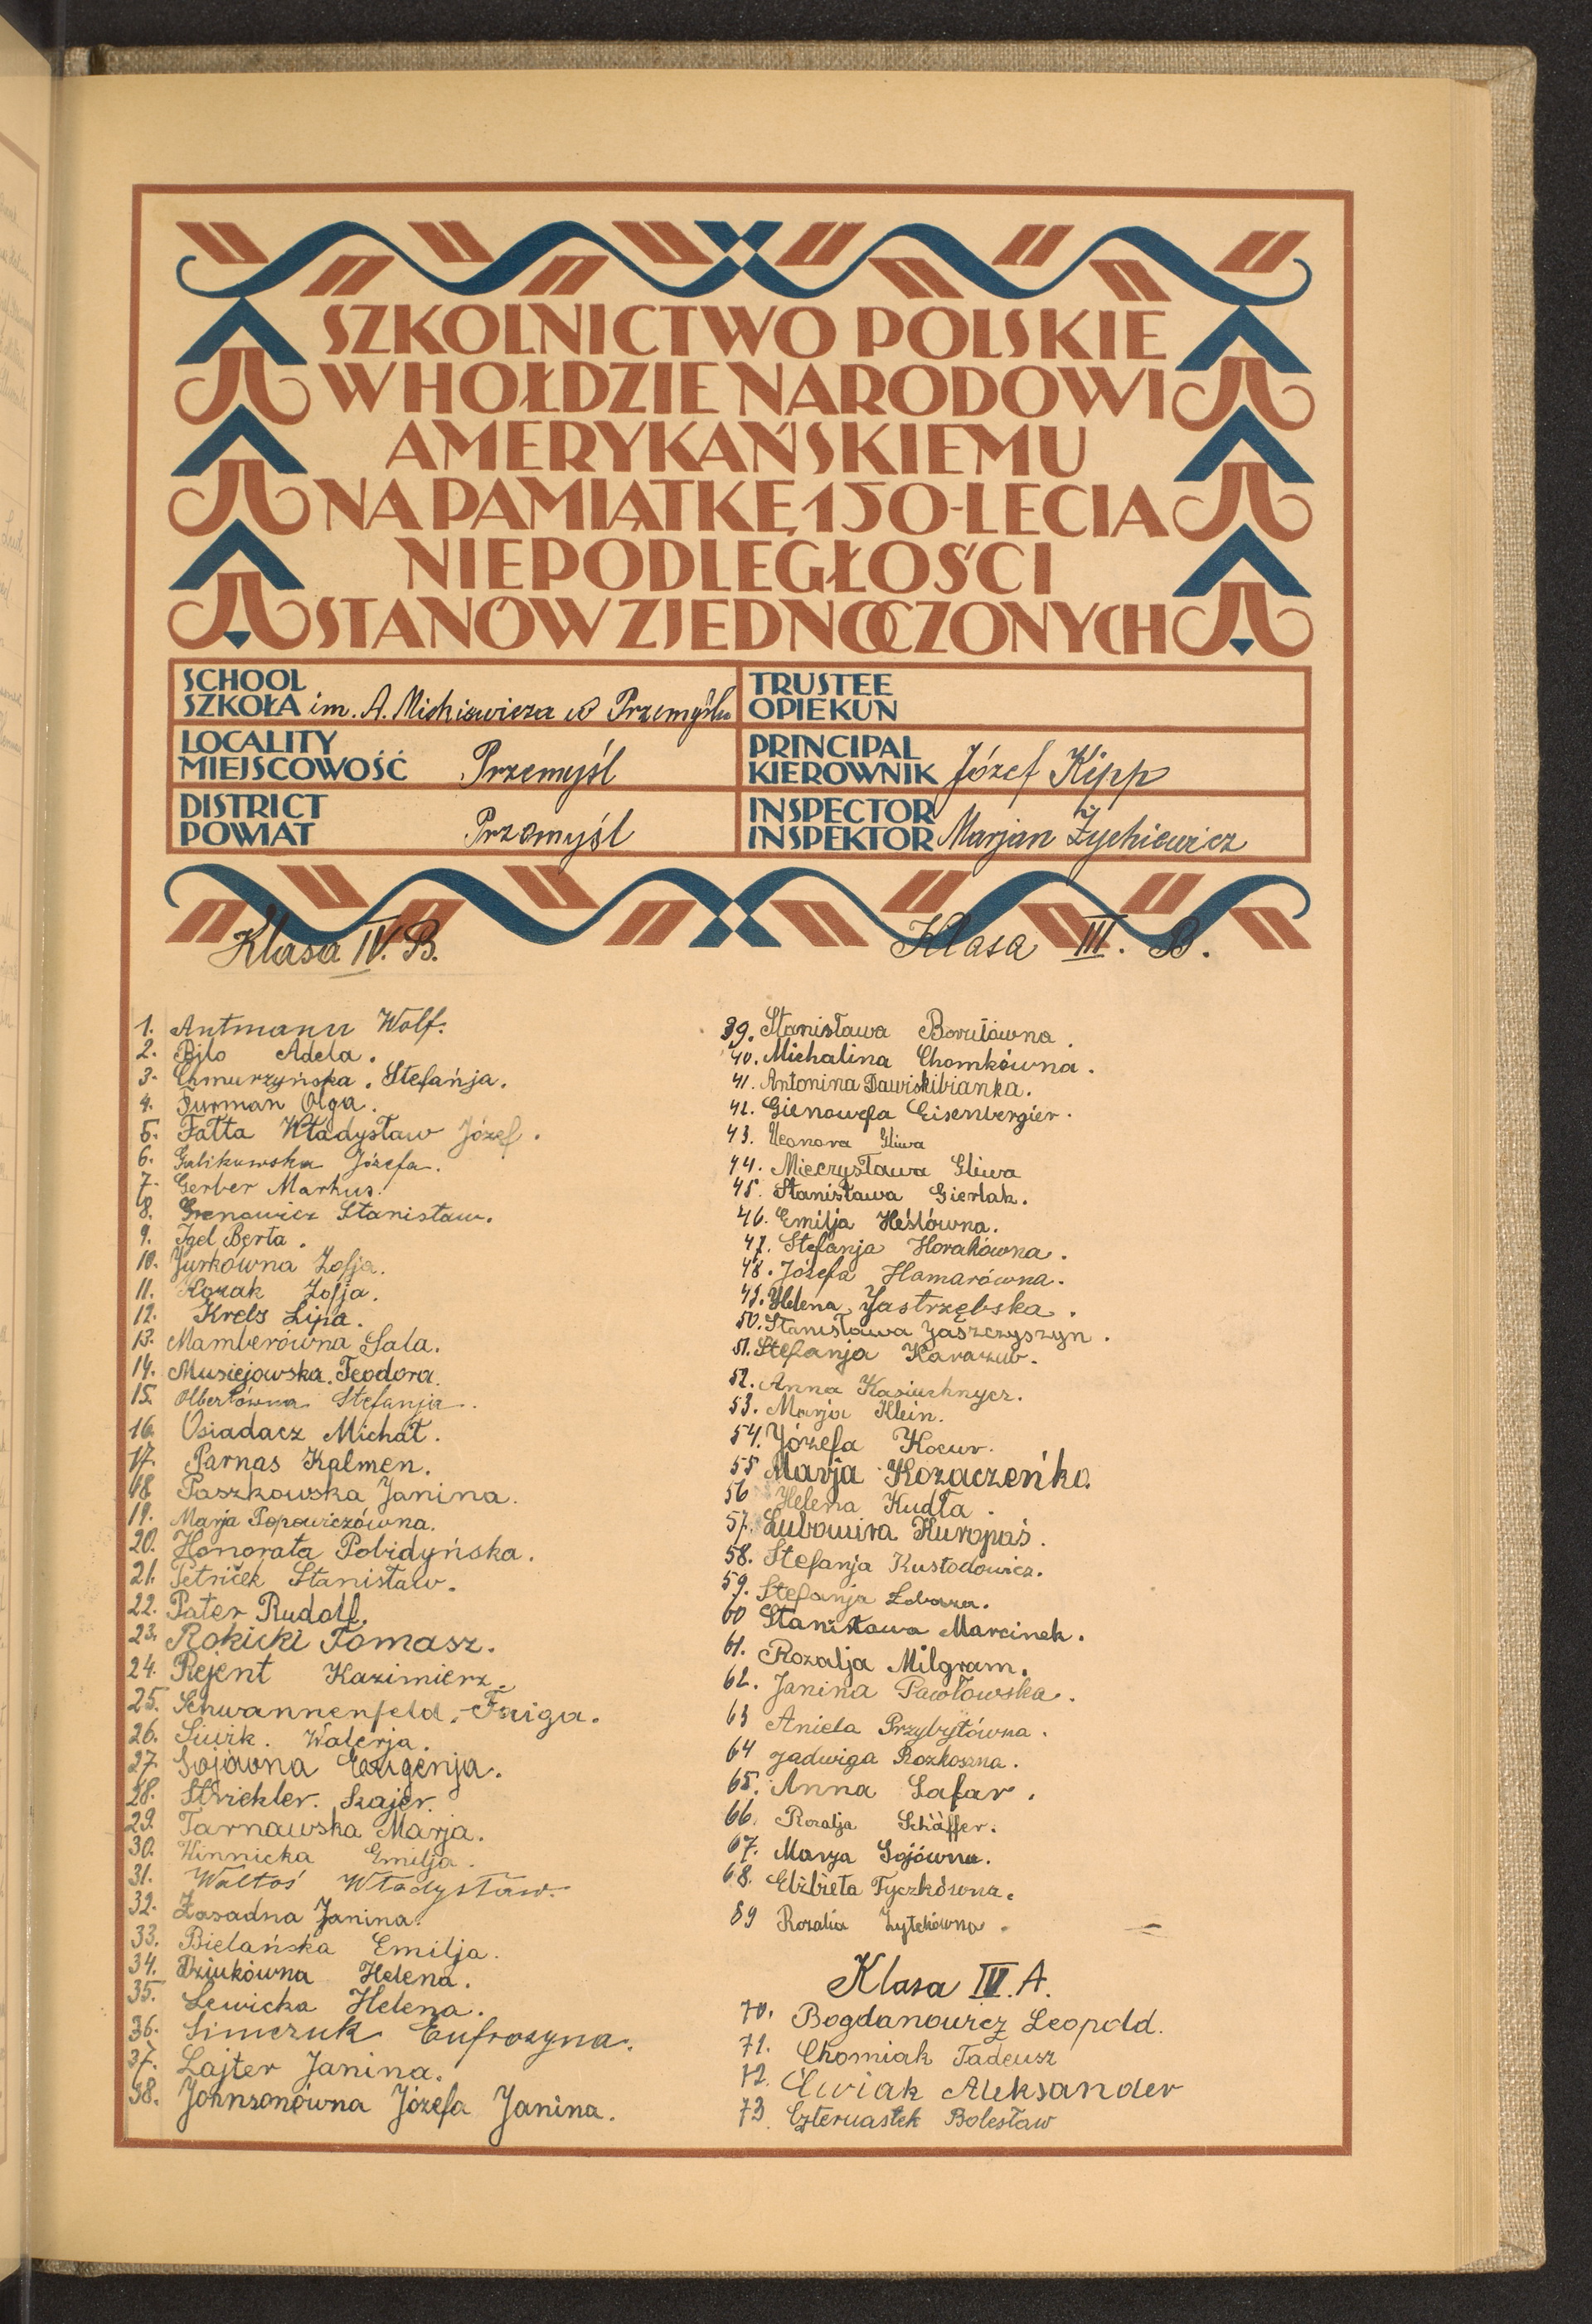 SZKOLNICTWO POLSKIE
W HOŁDZIE NARODOWI
AMERYKAŃSKIEMU
NA PAMIĄTKĘ 150-LECIA
NIEPODLEGŁOŚCI
STANÓW ZJEDNOCZONYCH
SCHOOL
SZKOŁA im. A. Mickiewicza w Przemyślu
LOCALITY
MIEJSCOWOŚĆ Przemyśl
DISTRICT
POWIAT Przemyśl
TRUSTEE
OPIEKUN
PRINCIPAL
KIEROWNIK Józef Kipp
INSPECTOR
INSPEKTOR Marjan Żychiewicz
Klasa IV. B.
1. Antmann Wolf.
2. Bjlo Adela.
3. Chmurzyńska. Stefańja.
4. Furman Olga.
5. Fatta Władysław Józef.
6. Galikowska Józefa.
7. Gerber Markus.
8. Grenowicz Stanisław.
9. Igel Berta.
10. Jurkówna Zofja.
11. Kozak Zofja.
12. Krebs Lipa.
13. Mamberówna Sala.
14. Musiejowska. Teodora.
15. Olbertówna Stefanja.
16. Osiadacz Michał.
17. Parnas Kalmen.
18 Paszkowska Janina.
19. Marja Popowiczówna.
20. Honorata Pobidyńska.
21. Petriček Stanisław.
22. Pater Rudolf.
23. Rokicki Tomasz.
24. Rejent Kazimierz.
25. Schwannenfeld. Faiga.
26. Siwik. Walerja.
27. Sojówna Eugenja.
28. Strickler. Szajer.
29. Tarnawska Marja.
30. Winnicka Emilja.
31. Waltoś Władysław.
32. Zasadna Janina.
33. Bielańska Emilja.
34. Dziukówna Helena.
35. Lewicka Helena.
36. Simczuk Eufrozyna.
37. Lajter Janina.
38. Johnsonówna Józefa Janina.
Klasa III. B.
39. Stanisława Borutówna.
40. Michalina Chomkówna.
41. Antonina Dawiskibianka.
42. Gienowefa Eisenbergier.
43. Leonora Gliwa
44. Mieczysława Gliwa
45. Stanisława Gierlak.
46. Emilja Heślówna.
47. Stefanja Horakówna.
48. Józefa Hamarówna.
49. Helena Jastrzębska.
50. Stanisława Jaszczyszyn.
51. Stefanja Karaszuw.
52. Anna Kasiuchnycz.
53. Marja Klein.
54. Józefa Kocur.
55 Marja Kozaczeńko.
56 Helena Kudła.
57. Lubomira Kuropaś.
58. Stefanja Kustodowicz.
59. Stefanja Łobaza.
60 Stanisława Marcinek.
61. Rozalja Milgram.
62. Janina Pawłowska.
63 Aniela Przybyłówna.
64 Jadwiga Rozkoszna.
65. Anna Safar.
66. Rozalja Schäffer.
67. Marja Sojówna.
68. Elżbieta Tyczkówna.
89 Rozalia Zytekówna.
Klasa IV. A.
70. Bogdanowicz Leopold.
71. Chomiak Tadeusz
72. Ćwiak Aleksander
73. Czternastek Bolesław